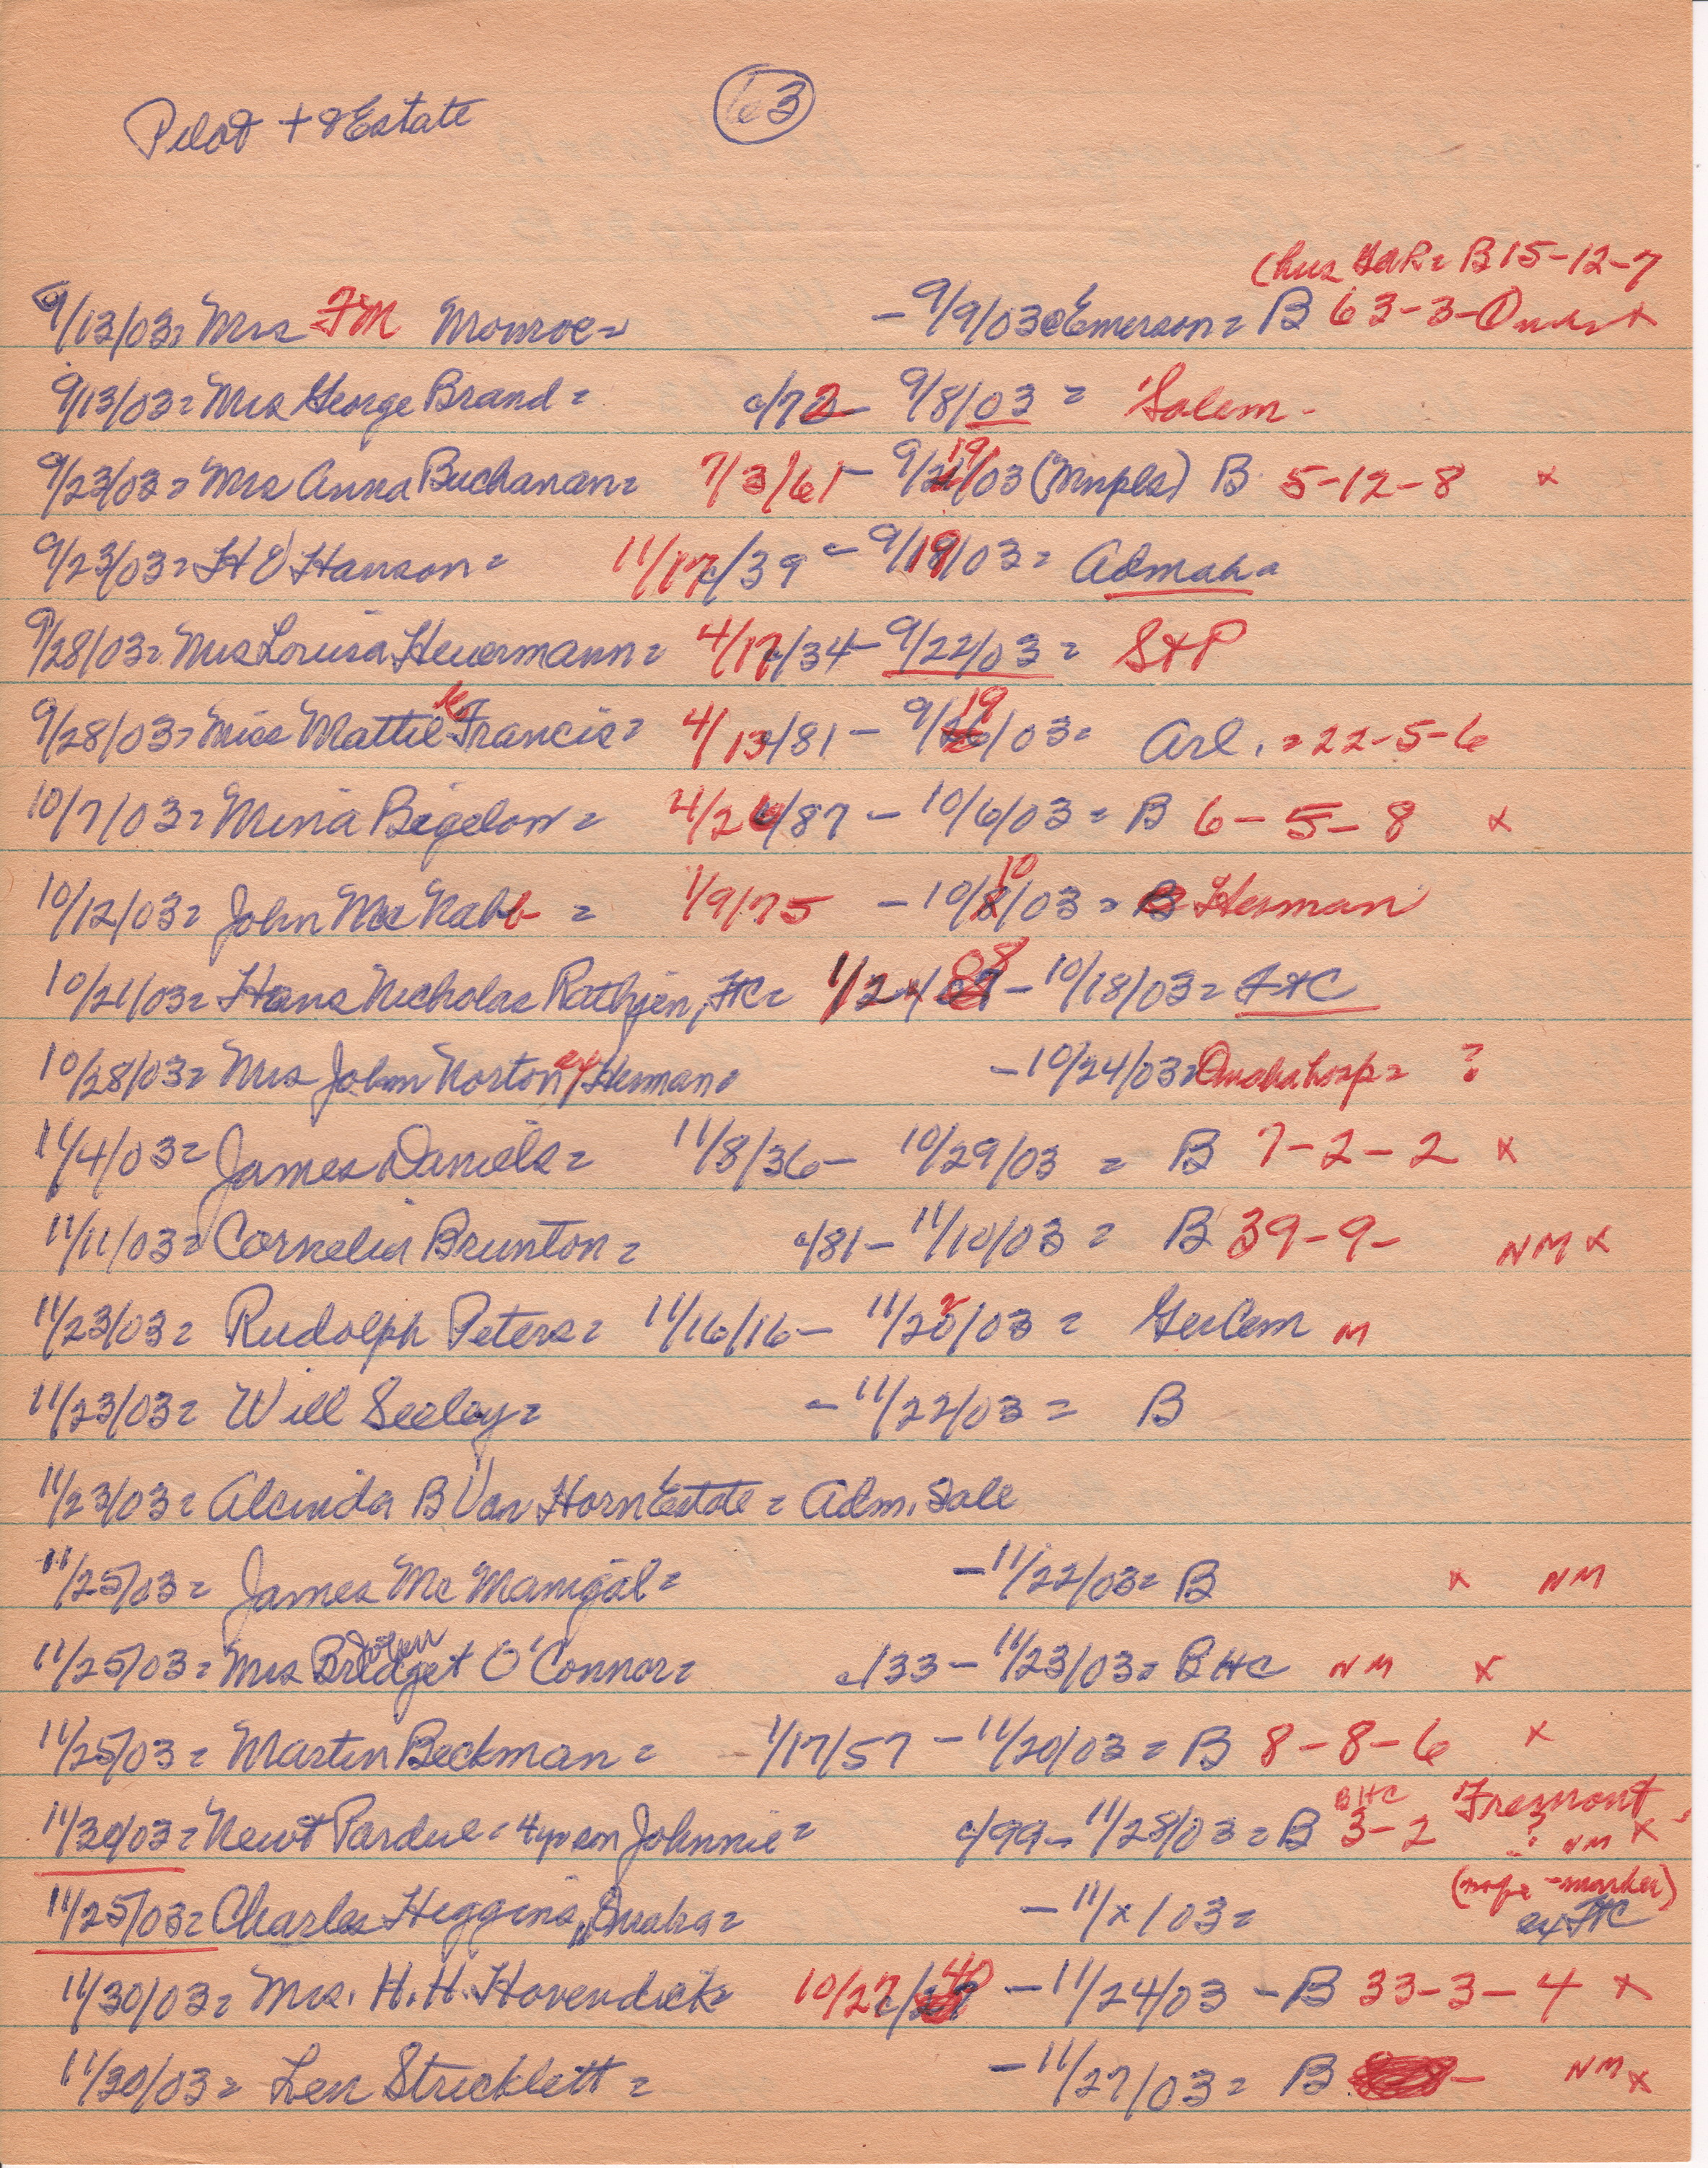 Pilot + Estate
63
(hus GAR = B 15-12-7
9/13/03 = Mrs FM Monroe = - 9/9/03 @ Emerson = B 63-3- x
9/13/03 = Mrs George Brand = c/72 - 9/8/03 = Salem -
9/23/03 = Mrs Anna Buchanan = 7/3/61 - 9/19/03 (Mnpls) B 5-12-8 x
9/23/03 = H V Hanson = 11/17/39 - 9/19/03 = Admah =
9/28/03 = Mrs Louisa Heuermann = 4/17/34 - 9/22/03 = S+P
9/28/03 = Miss Mattie Francis = 4/13/81 - 9/19/03 = Arl. = 22-5-6
10/7/03 = Mina Bigelow = 4/26/87 - 10/6/03 = B 6-5-8 x
10/12/03 = John McNabb = 1/9/75 - 10/10/03 = Herman
10/21/03 = Hans Nicholas Rathjen, FtC = 1/2/88 - 10/18/03 = FtC
10/28/03 = Mrs John Norton of Herman = - 10/24/03 = Omaha hosp = ?
11/4/03 = James Daniels = 11/8/36 - 10/29/03 = B 7-2-2 x
11/11/03 = Cornelia Brunton = c/81 - 11/10/03 = B 39-9- NM x
11/23/03 = Rudolph Peters = 11/16/16 - 11/22/03 = GerCem M
11/23/03 = Will Seeley = - 11/22/03 = B
11/23/03 = Alcinda B Van Horn Estate = Adm. Sale
11/25/03 = James McManigal = - 11/22/03 = B x NM
11/25/03 = Mrs Bridget O'Connor = c/33 - 11/23/03 = BHC NM x
11/25/03 = Martin Beckman = 1/17/57 - 11/20/03 = B 8-8-6 x
BHC Fremont
11/30/03 = Newt Pardue = 4 yo son Johnnie = c/99 - 11/28/03 = B 3-2 ? NM x
(nope - marker)
11/25/03 = Charles Higgins, Omaha = - 11/x/03 = FtC
11/30/03 = Mrs. H. H. Hovendick = 10/27/40 - 11/24/03 - B 33-3-4 x
11/30/03 = Len Stricklett = - 11/27/03 = B - NM x